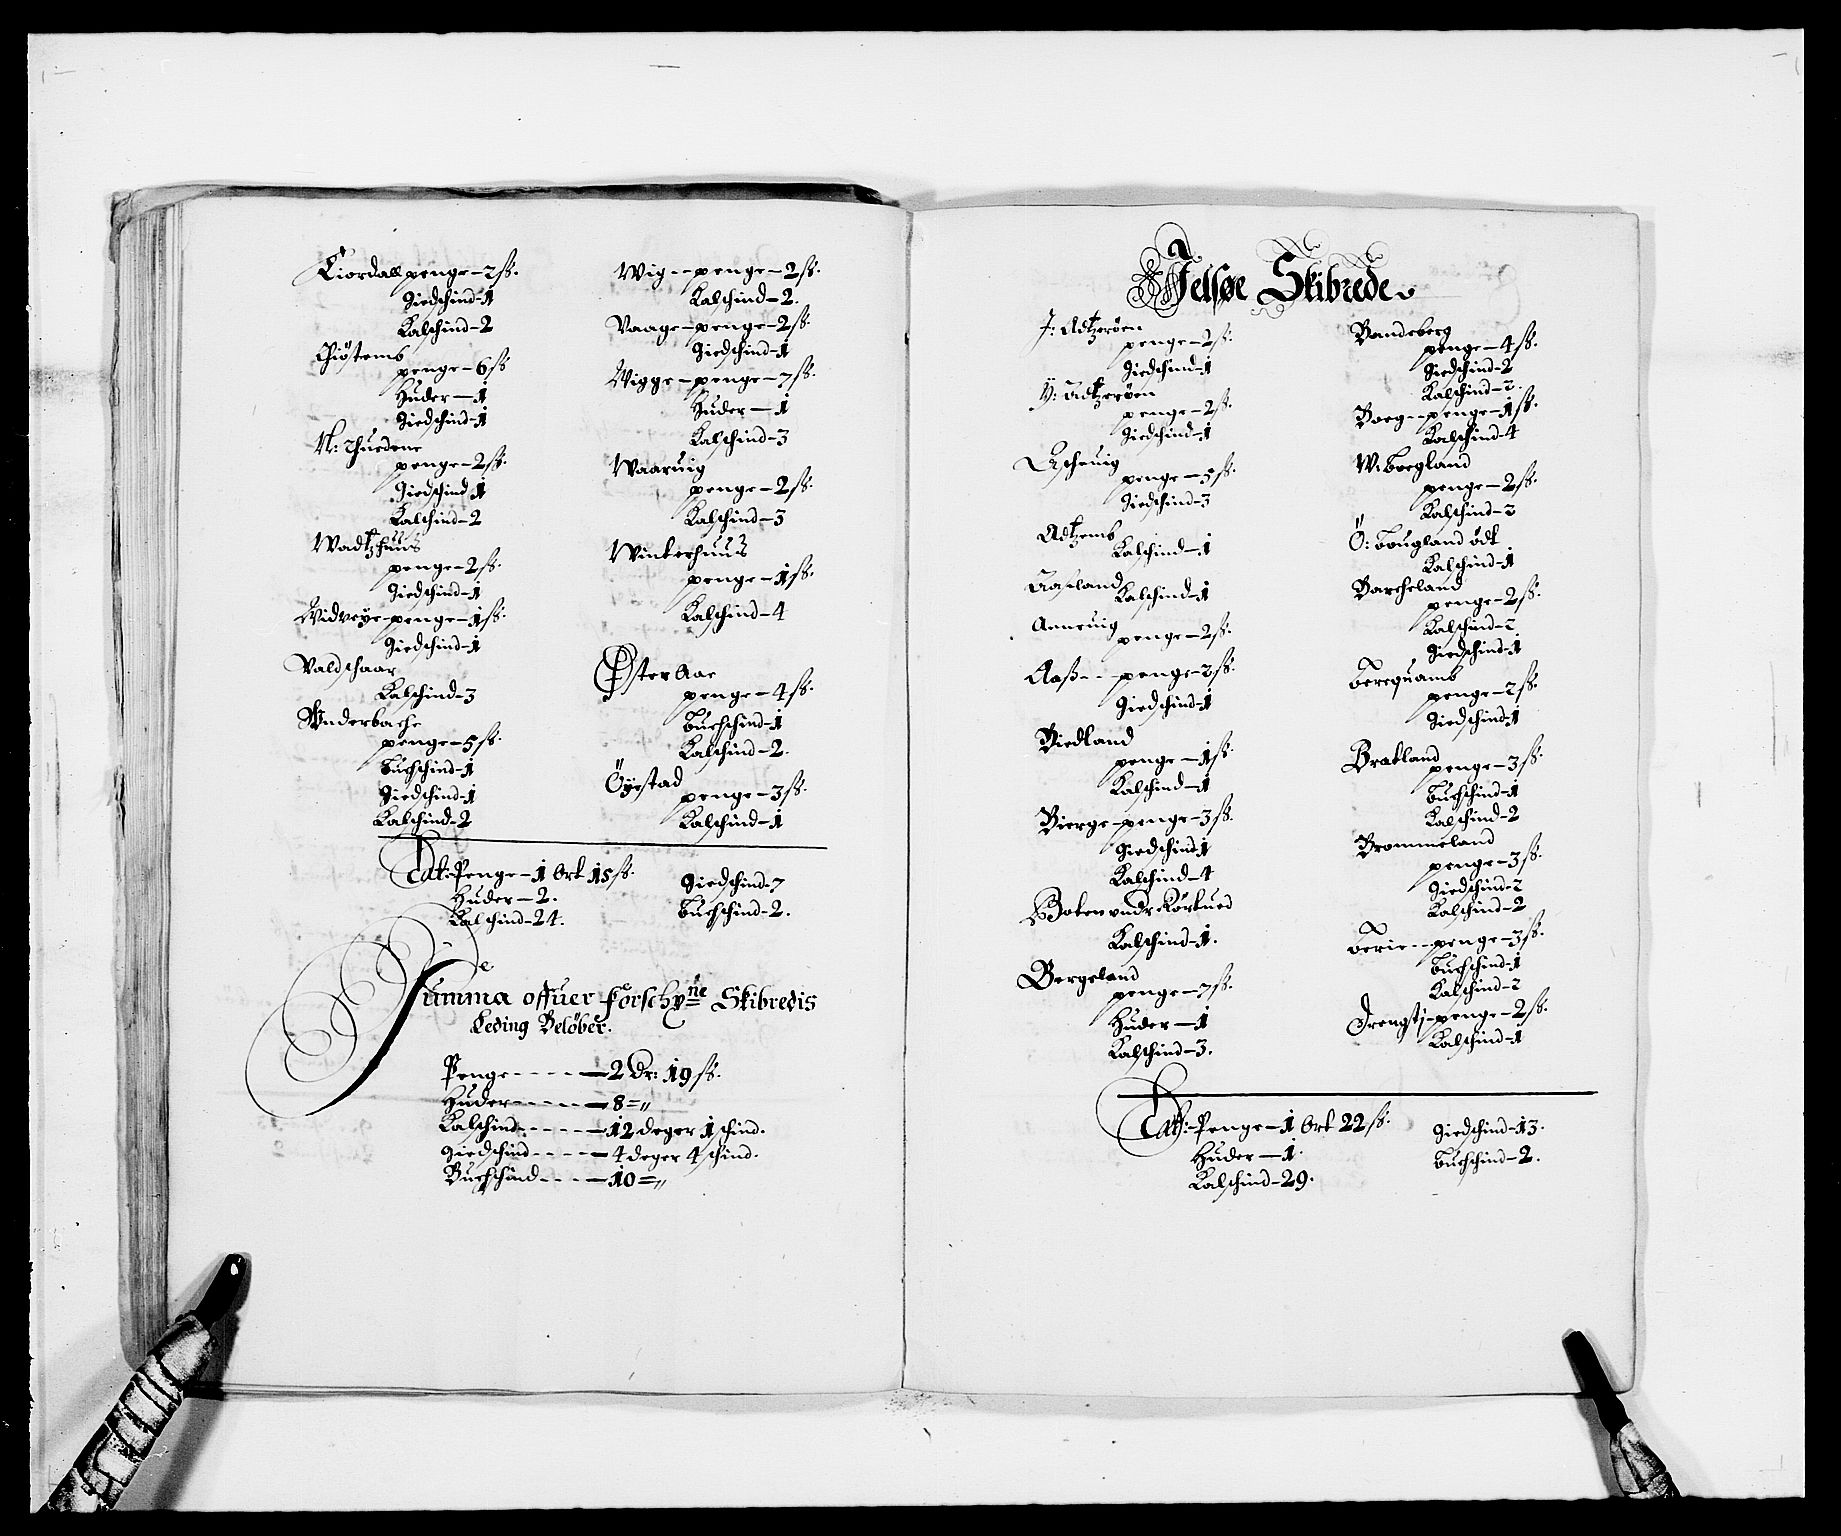 Tiordall penge - 2 ß.
Giedschind - 1
Kalschind - 2
Thiøtemb
penge - 6 ß
Huder - 1
Giedschind - 1
N: Thuedene
penge - 2 ß.
Giedschind 1
Kalschind - 2
Wadtzhuus
penge - 2 ß.
Giedschind - 1
Widveye - penge - 1 ß.
Giedschind - 1
Valdschaar
Kalschind - 3
Vnderbache
penge - 5 ß.
Buchschind - 1
Giedschind - 1
Kalschind - 2
Wig - - penge - 2 ß.
Kalschind - 2.
Vaage - penge - 2 ß.
Giedschind - 1
Wigge - penge - 7 ß.
Huder - 1
Kalschind - 3
Waaruig
penge - 2 ß.
Kalschind - 3
Winterhuus
penge - 1 ß.
Kalschind - 4
Øster Aae
penge - 4 ß.
Buchschind - 1
Kalschind - 2.
Öyestad
penge - 3 ß.
Kalschind - 1
Latt: Penge - 1 Ort 15 ß.
Huder - 2.
Kalschind - 24.
Giedschind - 7
Buchschind - 2.
Summa offuer Forschne Skibredis
Leding Beløber.
Penge - - - - 2 Dr: 19 ß.
Huder - - - - 8 =
Kalschind - - - - 12 deger 1 schind.
Giedschind - - - - 4 deger 4 schind.
Buchschind - - - 10 =
Jelsøe Skibrede
J: Adtzerøen
penge - 2 ß.
Giedschind - 1
Y: Adtzerøen
penge - 2 ß.
Giedschind - 1
Ascheuig
penge - 5 ß.
Giedschind - 3
Adtzemb
Kalschind - 1
Aasland
Kalschind - 1
Anneuig
penge - 2 ß.
Aaß - - - penge - 2 ß.
Giedschind - 1
Biedland
penge - 1 ß.
Kalschind - 1
Bierge - penge - 3 ß.
Giedschind 1
Kalschind - 4
Boten vndr Kørkued
Kalschind - 1.
Bergeland
penge - 7 ß.
Huder - 1
Kalschind - 3.
Bandeberg
penge - 4 ß.
Giedschind - 2
Kalschind - 2.
Boeg - - penge - 1 ß.
Kalschind - 4
W: Boegland
penge - 2 ß.
Kalschind - 3
Ö: Bougland ödt
Kalschind - 1
Barcheland
penge - 2 ß.
Kalschind - 2
Giedschind - 1
Berequamb
penge - 2 ß.
Giedschind - 1
Bratland
penge - 3 ß.
Buchschind - 1
Kalschind - 2
Brommeland
penge - 3 ß.
Giedschind - 2
Kalschind - 2
Berie - - penge - 3 ß.
Buchschind - 1
Kalschind - 2
Drengstj - penge - 2 ß.
Kalschind - 1
Latt: - Penge - 1 Ort 22 ß.
Huder - 1.
Kalschind - 29.
Giedschind - 13.
Buchschind - 2.